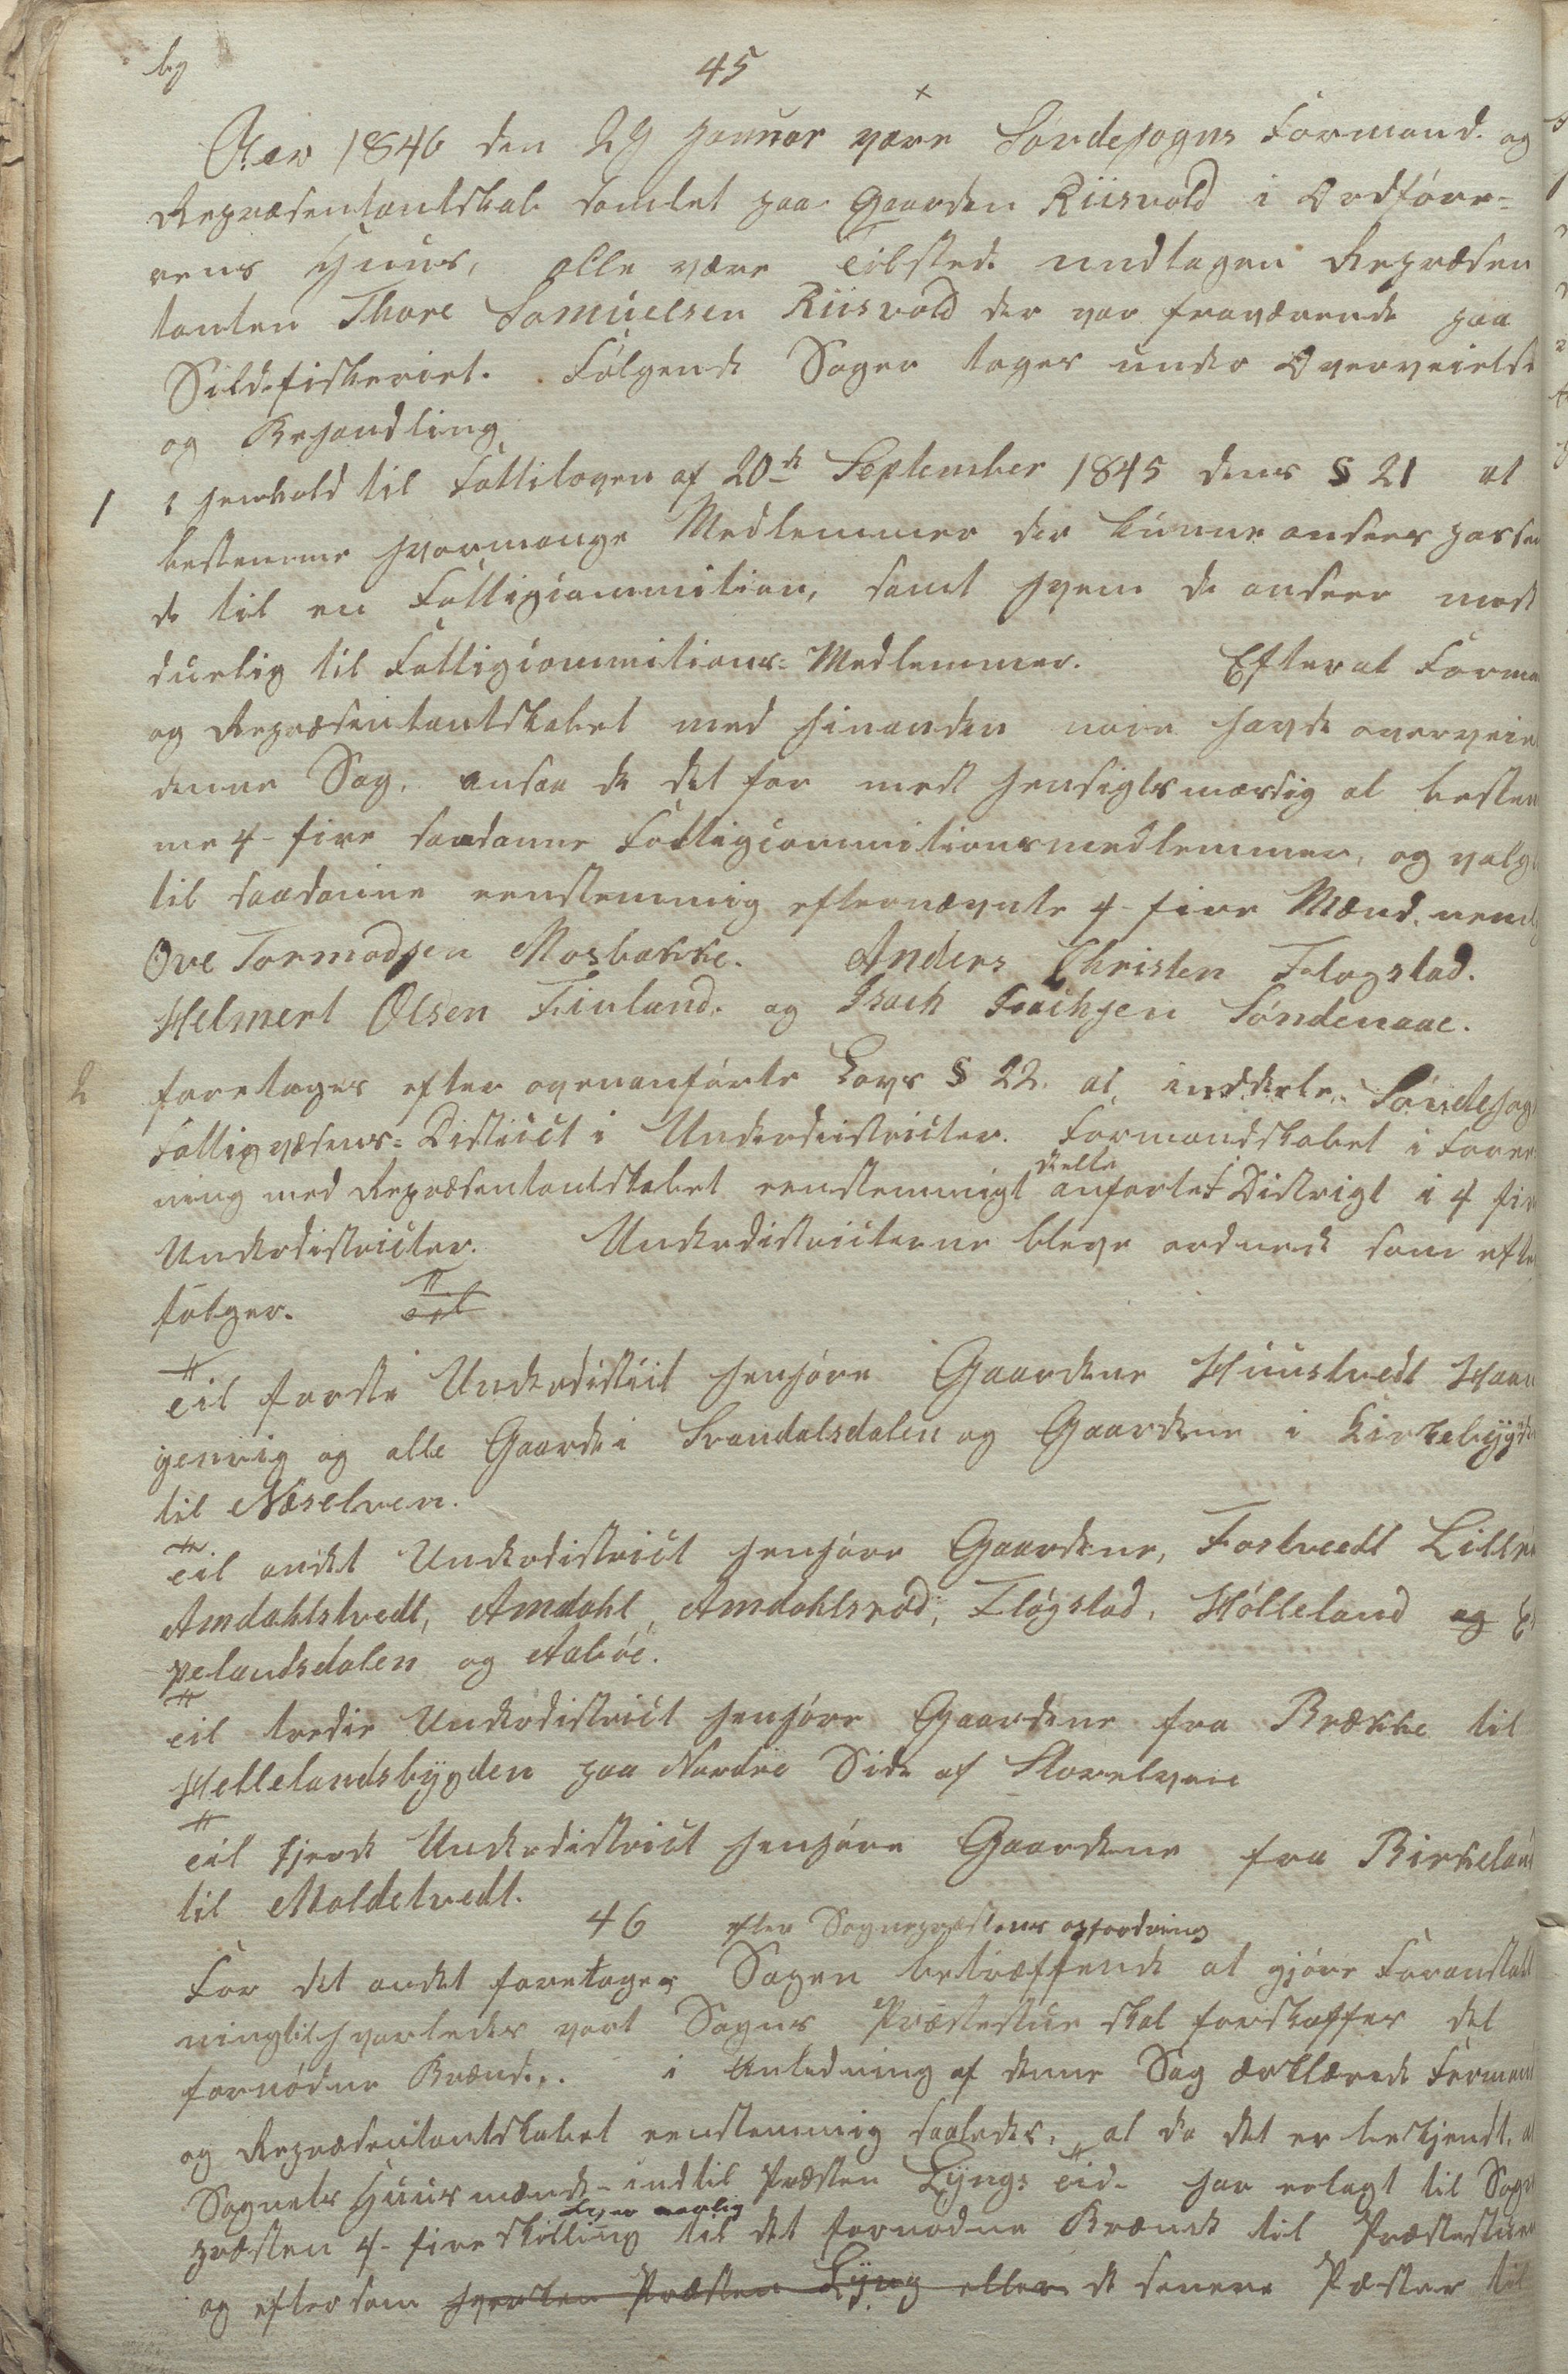 45
Aar 1846 den 29 Januar vare Søndesogns Formand. og
Repræsentantskab samlet paa Gaarden Riisvold i Ordføre-
rens Huus, alle vare Tilstede undtagen Repræsen
tanten Thore Samuelsen Riisvold der var fraværende paa
Sildefiskeriet. Følgende Sager tages under Overveielse
og Behandling
1 I Henhold til Fattiloven af 20de September 1845 dens § 21 at
bestemme hvormange Medlemmer der kunne ansees passen
de til en Fattigcommition, samt hvem de anseer mest
duelig til Fattigcommitions-Medlemmer. Efterat Forma
og Repræsentantskabet med hinanden nøie havde overveiet
denne Sag, ansaa de det for mest hensigtsmæssig at bestem
me 4- fire saadanne Fattigcommitionsmedlemmer, og valgt
til saadanne eenstemmig efternævnte 4- fire Mænd, nemlig
Ove Tormodsen Mosbække. Anders Christen Fløgstad.
Helmert Olsen Finland. og Isach Isachsen Søndenaae.
2 foretages efter ovenanførte Lovs § 22. at inddele Søndesogns
Fattigvæsens-District i Underdistricter. Formandskabet i Foree
ning med Repræsentantskabet eenstemmigt deelte anførtet Distrigt i 4 fire
Underdistricter. Underdistricterne bleve ordnede som efter
følger. Til
Til første Underdistrict henhøre Gaardene Huustvedt Haan
genvig og alle Gaarde i Svandalsdalen og Gaardene i Kirkebÿgde
til Næselven.
Til andet Underdistrict henhøre Gaardene, Fostveedt Lille
Amdahlstvedt, Amdahl, Amdahlsrød, Fløgstad, Hølleland og E
pelandsdalen og Aabøe.
Til tredie Underdistrict henhøre Gaardene fra Brække til
Hellelandsbÿgden paa Nordre Side af Storelven
Til fjerde Underdistrict henhøre Gaardene fra Birkeland
til Moldetvedt.
46 efter Sognepræstens opfordring
For det andet foretages Sagen betræffende at gjøre Foranstalt
ningtil hvorledes vort Sogns Præstestue skal forskaffes det
fornødne Brænde. i Anledning af denne Sag ærklærede Formand
og Repræsentantskabet eenstemmig saaledes, at da det er bekjendt, at
Sognets Huusmænd- indtil Præsten Lÿngs Tid- har erlagt til Sogne
præsten 4- fire skilling hver aarlig til det fornødne Brænde til Præstestuen
og eftersom hverken Præsten Lÿng eller de senere Præster til